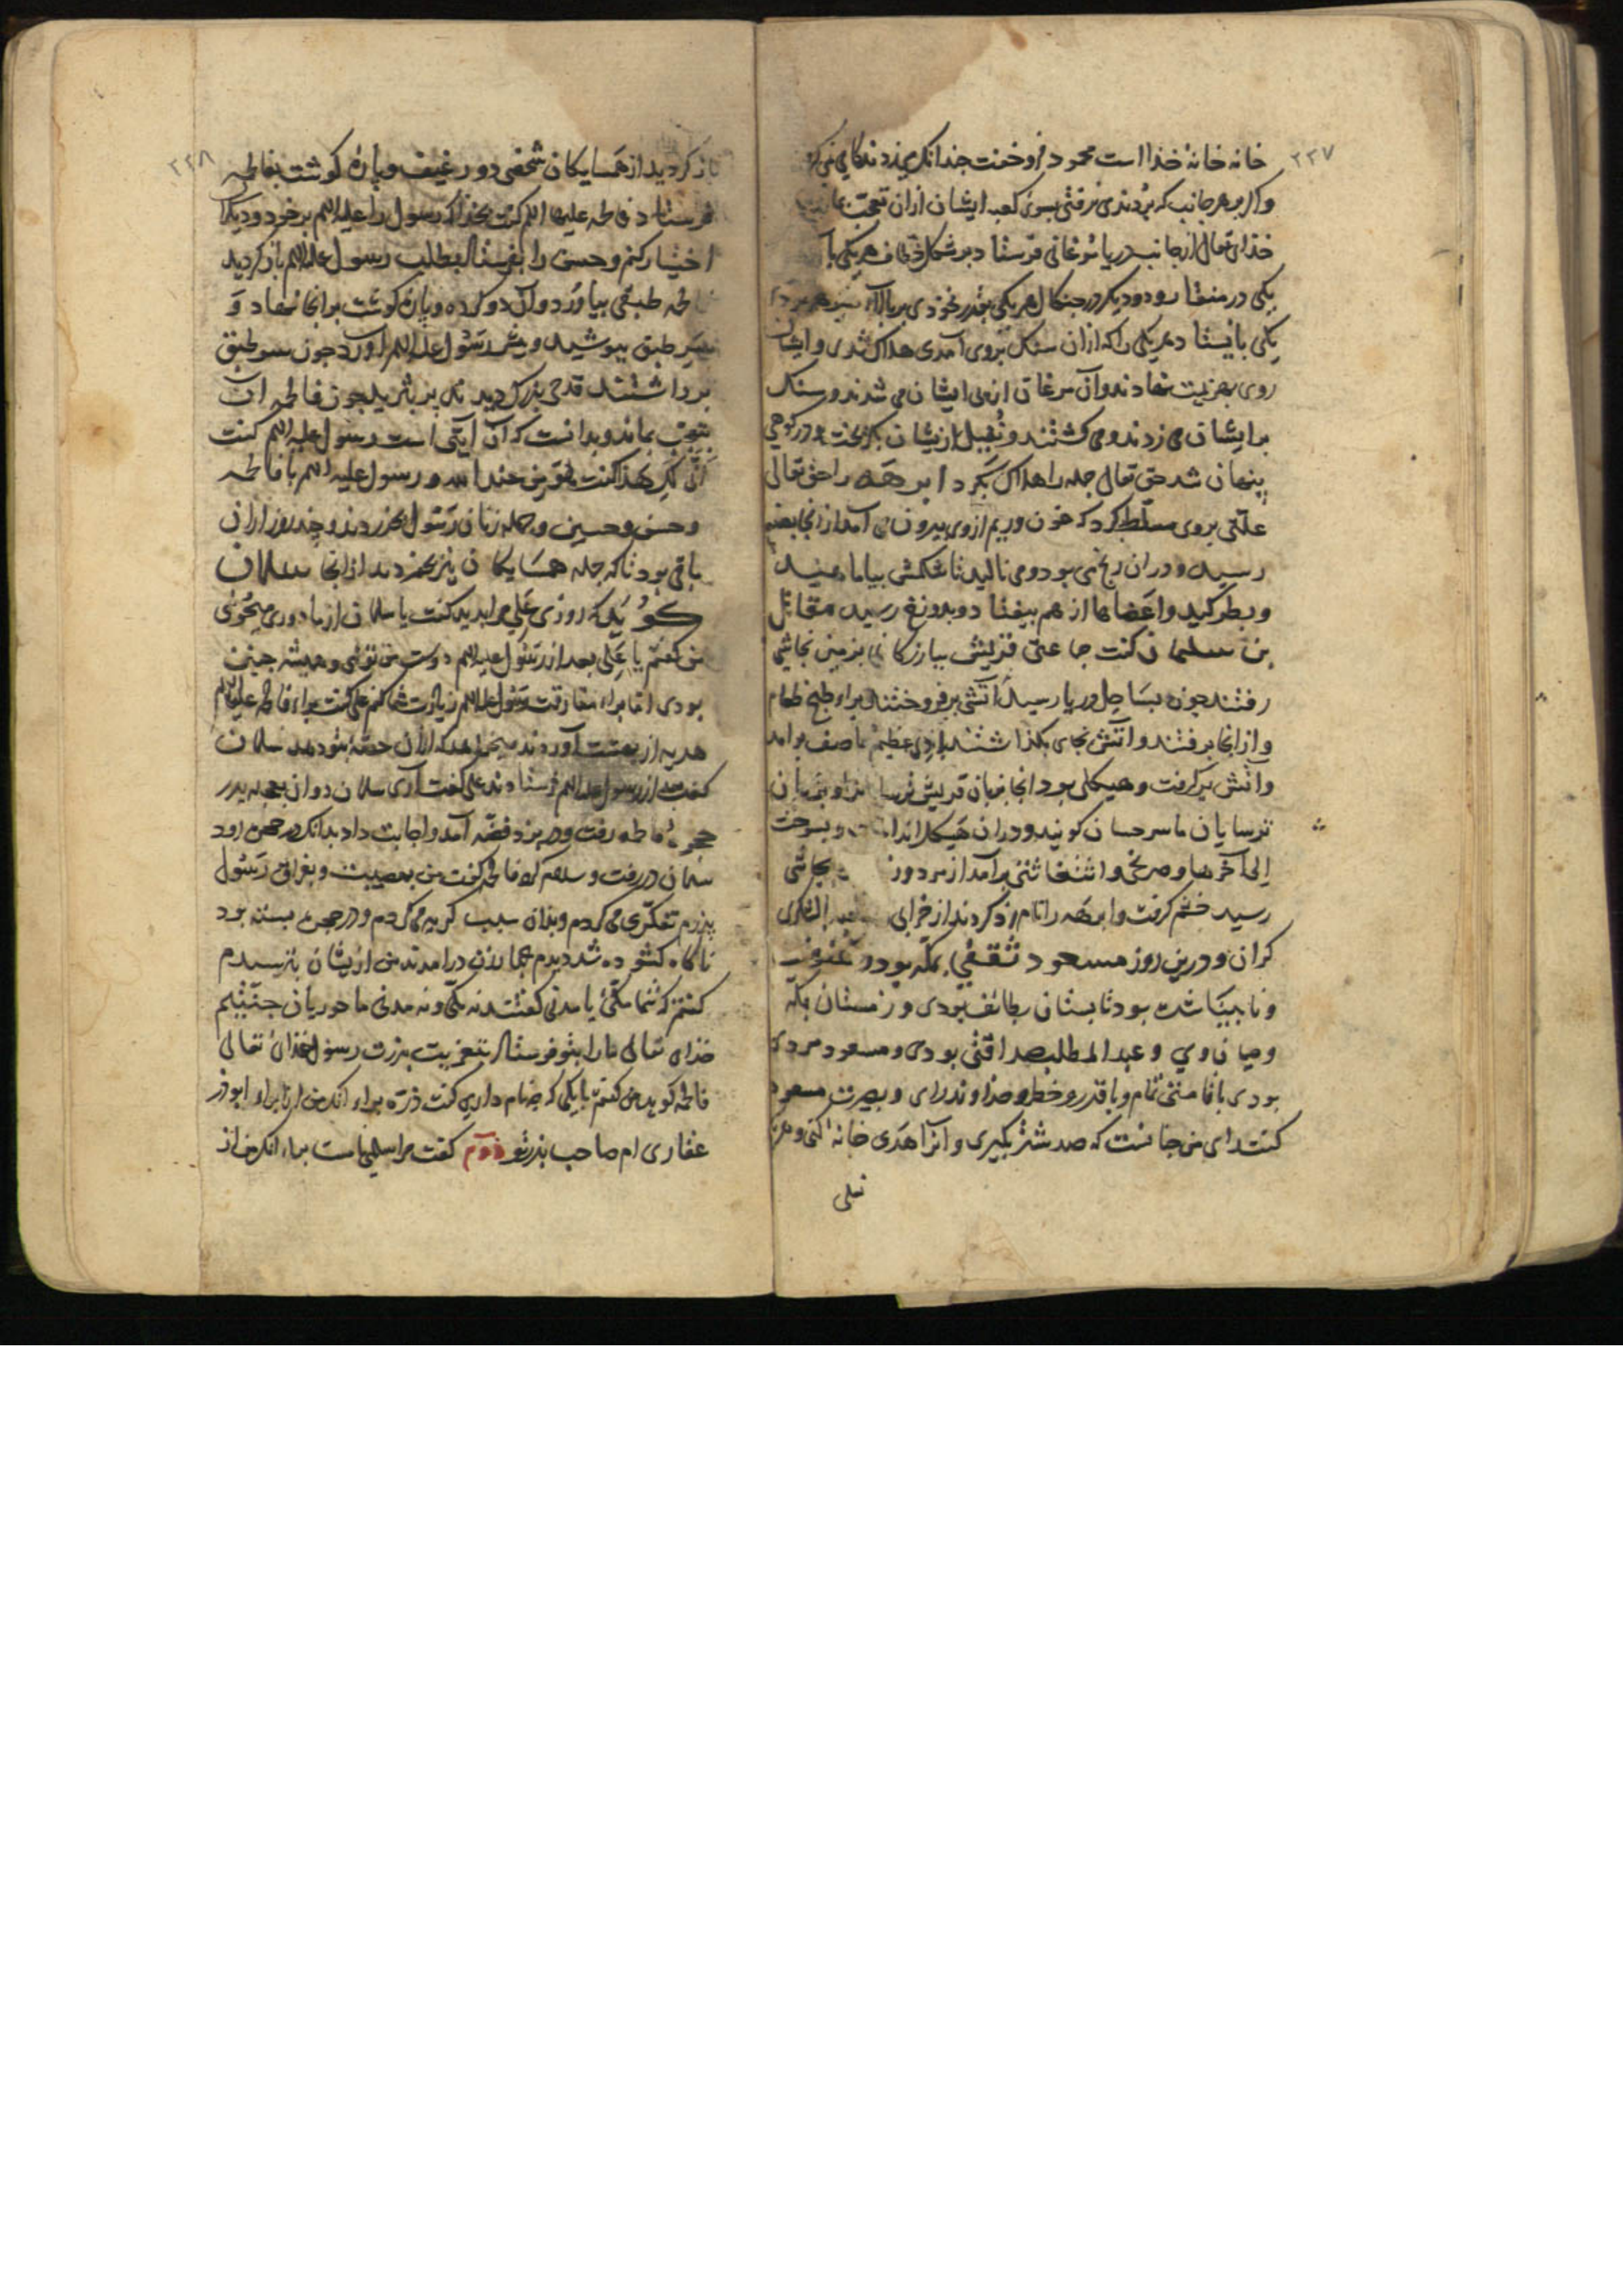 ۲۳۷
خانه خانهٔ خذا است محمود فروخفت جندانک می زدند کامی نمی کرد
واکر بهر جانب که بردندی برفتی بسوی کعبه ایشان ازان تعجب
خذای تعالی از جانب دریا مرغانی فرستاد بر شکل خطاف هر یکی با
یکی در منقار و دو دیکر در جنکال هر یکی بقدر نخودی بر بالاء
یکی بایستاد هر یکی را که ازان سنک بروی آمدی هلاک شدی و ایشان
روی بهزیمت نهادند و آن مرغان از پی ایشان می شدند و سنک
بر ایشان می زدند و می کشتند و نفیل ازیشان بکریخت و در کوهی
پنهان شد حق تعالی جمله را هلاک بکرد ابرهه را حق تعالی
علتی بروی مسلط کرد که خون و ریم ازوی بیرون می آمد از انجا
رسید و دران رنج می بود و می نالید تا شکمش بیاماسید
و بطرکید و اعضاها از هم بیفتاد و بدوزخ رسید مقاتل
بن سلیمان کفت جماعتی قریش ببازرکانی بزمین نجاشی
رفتند چون بساحل دریا رسید آتشی برفروختند براء طبخ طعام
و از انجا برفتند و آتش بجای بکذاشتند بادی عظیم عاصف برامد
و آتش بر کرفت و هیکلی بود انجا بزبان قریش و بزبان
ترسایان ماسرحسان کویند و دران هیکل و بسوخت
الی آخرها و صریخی و استغاثتی برآمد از مردوز نجاشی
رسید خشم کرفت و ابرهه را نام زد کردند از خرابی
کران و درین روز مسعود ثقفی بمکه بود و
و نابینا شده بود تابستان بطائف بودی و زمستان بمکه
و میان وی و عبدالمطلب صداقتی بودی و مسعود مردی
بودی بافامتی تمام و باقدر و خطر و خداوند رای و بصیرت مسعود
کفت رای من جانست که صد شتر بکیری و آنرا هدی خانه کنی و هر
نعلی
۲۳۸
باز کردید از همسایکان شخصی دو رغیف و پارهٔ کوشت بفاطمه
فرستاد فاطمه علیها السلم کفت بخذا که رسول را علیه السلم بر خود و دیکران
اختیار کنم و حسن را بفرستاد بطلب رسول علیه السلم باز کردید
فاطمه طبقی بیاورد و آن دو کرده و پارهٔ کوشت بر انجا نهاد و
سر طبق بپوشید و پیش رسول علیه السلم آورد چون سر طبق
برداشتند قدحی بزرک دیدند پر ثرید چون فاطمه آن
تعجب بماند و بدانست که آن آیتی است رسول علیه السلم کفت
انّی لکِ هذا کفت هو من عند الله و رسول علیه السلم با فاطمه
و حسن و حسین و جمله زنان رسول بخوردند و چند روز ازان
باقی بود تا که جمله همسایکان نیز بخوردند از انجا سلمان
کوید که روزی علی مرا بدید کفت یا سلمان از ما دوری میجوئی
من کفتم یا علی بعد از رسول علیه السلم دوست من توئی و همیشه چنین
بودی اما براء مفارقت رسول علیه السلم زیارت شما کم علی کفت براء فاطمه علیها السلم
هدیه از بهشت آوردند میخواهد که ازان حصهٔ بتو دهد سلمان
کفت بعد از رسول علیه السلم فرستادند علی کفت آری سلمان دوان بعجله بدر
حجرهٔ فاطمه رفت و در بزد فضه آمد و اجابت داد بدانک در حجره رود
سلمان در رفت و سلام کرد فاطمه کفت من بمصیبت و بفراق رسول
پذرم تفکری می کردم و بدان سبب کریه می کردم و در حجره بسته بود
ناکاه کشوده شد دیدم چهار زن درامدند من ازیشان بترسیدم
کفتم که شما مکی یا مدنی کفتند نه مکی و نه مدنی ما حوریان جنتیم
خذای تعالی ما را بتو فرستاد بتعزیت پذرت رسول خذای تعالی
فاطمه کوید من کفتم با یکی که چه نام داری کفت ذره براء انکه من از براء ابوذر
غفاری ام صاحب پذر تو دوم کفت مرا سلمی است براء انکه من از